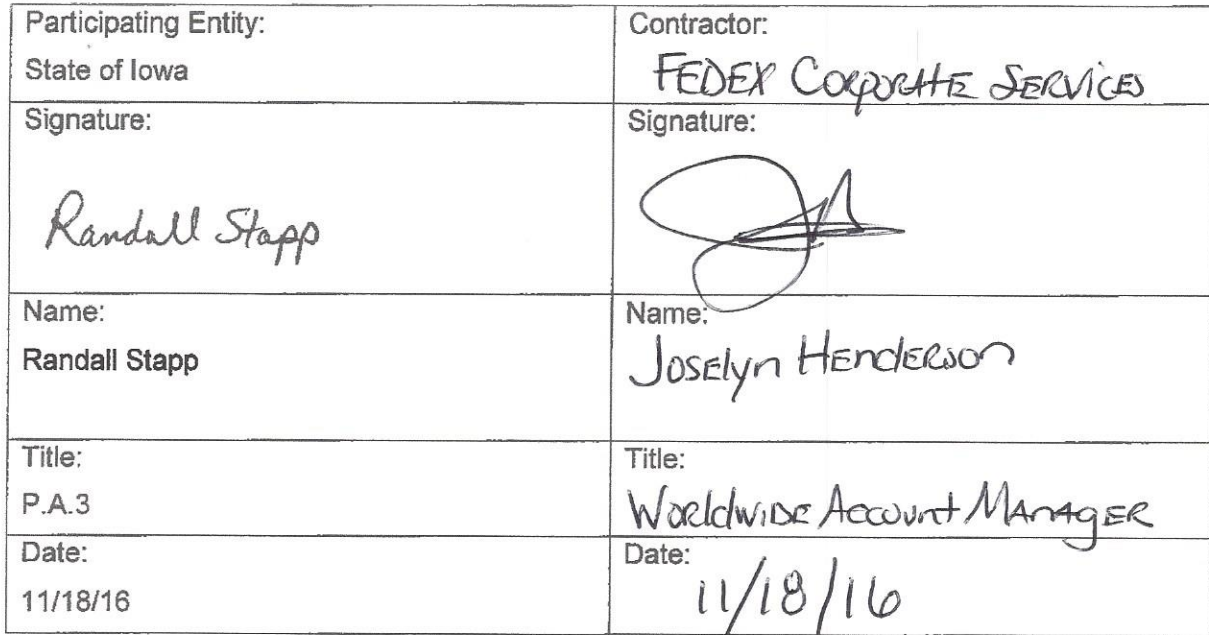 Participating Entity:
State of Iowa
Contractor:
FEDEX CORPORATE SERVICES
Signature:
Randall Stapp
Signature:
Name:
Randall Stapp
Name:
Joselyn Henderson
Title:
P.A.3
Title:
Worldwide Account Manager
Date:
11/18/16
Date:
11/18/16